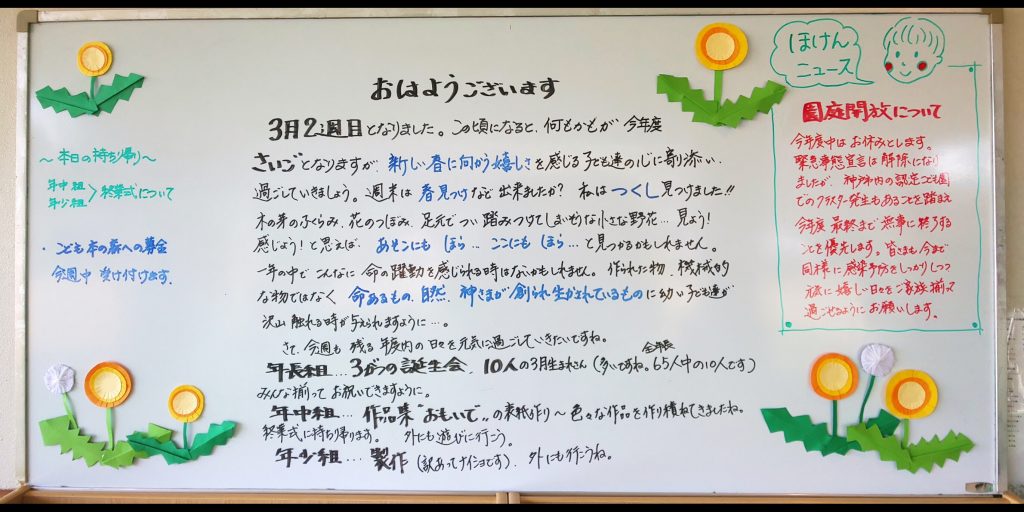 おはようございます
3月2週目となりました。この頃になると、何もかもが 今年度
さいごとなりますが、新しい春に向かう嬉しさを感じる子ども達の心に寄り添い、
過ごしていきましょう。週末は 春見つけなど 出来ましたか? 私は つくし見つけました!!
木の芽のふくらみ、花のつぼみ、足元でつい踏みつけてしまいそうな小さな野花… 見よう!
感じよう!と思えば、あそこにも ほら… ここにも ほら… と見つかるかもしれません。
一年の中で こんなに 命の躍動を感じられる時はないかもしれません。作られた物、機械的
な物ではなく 命あるもの、自然、神さまが創られ生かされているものに幼い子ども達が
沢山 触れる時が与えられますように…。
さて、今週も 残る年度内の日々を元気に過ごしていきたいですね。
年長組… 3がつの誕生会、10人の3月生まれさん(多いですね。全年長65人中の10人です)
みんな揃って お祝いできますように。
年中組… 作品集“おもいで”の表紙作り〜色々な作品を作り積ねてきましたね。
終業式に持ち帰ります。 外にも遊びに行こう。
年少組… 製作(訳あってナイショです)、外にも行こうね。
〜本日の持ち帰り〜
年中組
年少組 > 終業式について
・こども本の森への募金
今週中 受け付けます。
ほけん
ニュース
園庭開放について
今年度中は お休みとします。
緊急事態宣言は 解除になり
ましたが、神戸市内の認定こども園
でのクラスター発生もあることを踏まえ
今年度 最終まで無事に終了する
ことを優先します。皆さまも今まで
同様に感染予防をしっかりしつつ
元気に嬉しい日々をご家族揃って
過ごせるように お願いします。